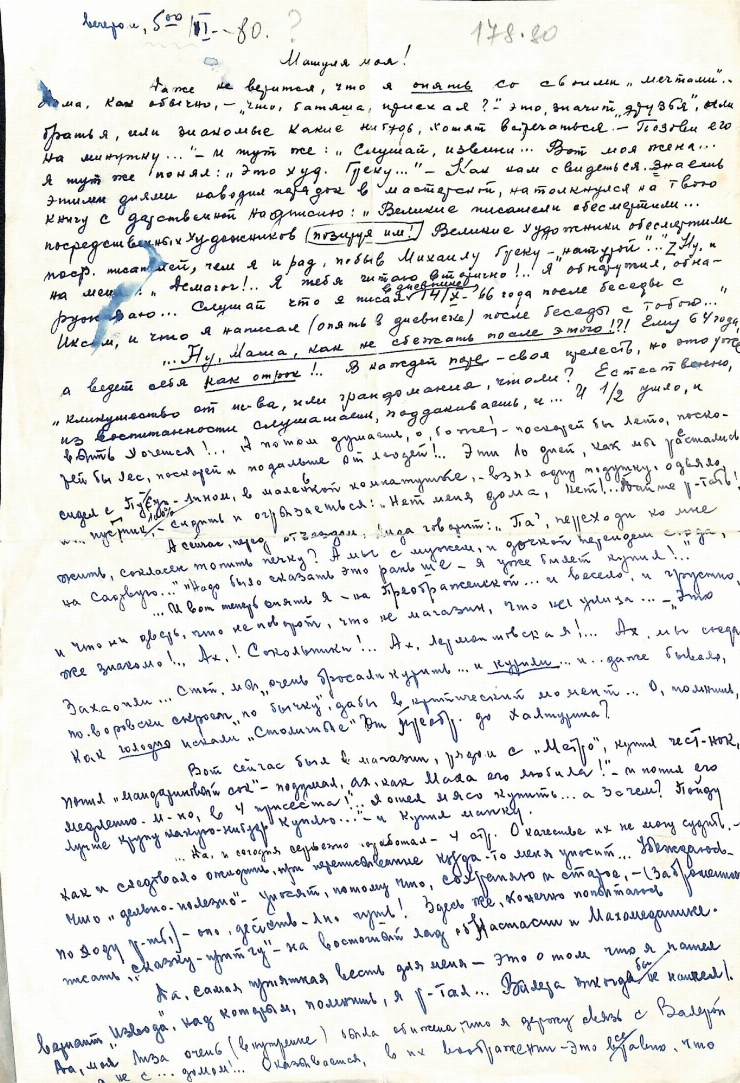 вечером, 5⁰⁰ /VI - 80. ?
178.80
Матуля моя!
Даже не верится, что я опять со своими „мечтами"..
Дома, как обычно, – „что, батяша, приехал?" – это, значит „друзья", или
братья, или знакомые какие нибудь, хотят встречаться. – Позови его
на минутку..." – и тут же: „Слушай, извини... Вот моя жена...
Я тут же понял: „Это худ. Греку..." – Как нам свидеться. Знаешь
этими днями наводил порядок в мастерской, натолкнулся на твою
книгу с дарственной надписью: „Великие писатели обесмертили...
посредственных художников (позируя им!) Великие художники обесмертили
поср. писателей, чем я и рад, побыв Михаилу Греку – „натурой"..." Ну, и
на меня: „Асмагог!.. Я тебя читаю вторично!.. Я обнаружил, обна-
руживаю... Слушай что я писал в дневнике 14/X - 66 года после беседы с
Иксом, и что я написал (опять в дневнике) после беседы с тобою..."
... Ну, Маша, как не сбежать после этого!?! Ему 64 года,
а ведет себя как отрок!.. В каждой поре – своя прелесть, но это уже
„кликушество от иск-ва, или грандомания, что ли? Естественно,
из воспитанности слушаешь, поддакиваешь, и... И 1/2 ушло, и
выть хочется!.. А потом думаешь, о, боже! – поскорей бы лето, поско-
рей бы лес, поскорей и подальше от людей!.. Эти 10 дней, как мы расстались
сидел с лином, в маленькой комнатушке, – взял одну подушку, одеяло,
и... – сидит и огрызается: „Нет меня дома, нет!.. Дайте р-тать!
А сейчас, перед отъездом, Лида говорит: „Па, переходи ко мне
жить, согласен топить печку? А мы с мужем, и дочкой перейдем сюда,
на Садовую..." „Надо было сказать это раньше – я уже билет купил!..
... И вот теперь опять я – на Преображенской... и весело, и грустно,
и что ни дверь, что не поворот, что не магазин, что не улица... – „Это
же знакомо!.. Ах,! Сокольники!.. Ах, Лермонтовская!.. Ах, мы сюда
заходили... Стоп, мы „очень бросали курить"... и курили... и... даже бывало,
по-воровски скрость „по бычку", дабы в критический момент... О, помнишь,
как голодно искали „Столичные" от Преобр. до Халтурина?
Вот сейчас был в магазин, рядом с „Метро", купил чест-нок,
попил „мандариновый сок" – подумал, „ах, как Маха его любила!" – и попил его
медленно. м-но, в 4 присеста!.. Пошел мясо купить... а зачем? Пойду
лучше крупу какую-нибудь куплю..." – и купил манку.
... На, и сегодня серьезно поработал – 4 стр. О качестве их не могу судить. –
Как и следовало ожидать, при переписывании куда-то меня уносит... Убеждаюсь
что „дельно-полезно" – уносят, потому что, сохраняю и старое, – (заброшенный
по ходу р-ты) – оно действ-но чуть! Здесь же, конечно попытаюсь
писать „сказку-притчу" – на восточный лад об Настасии и Махамеданике.
Да, самая приятная весть для меня – это о том что я нашел
вариант „Извода", над которым, помнишь, я р-тал... Вчера никогда бы не нашел!
Да, моя Лиза очень (внутренне) была обижена, что я держу связь с Валерой
а не с... домом!.. Оказывается, в их воображении – это все равно, что